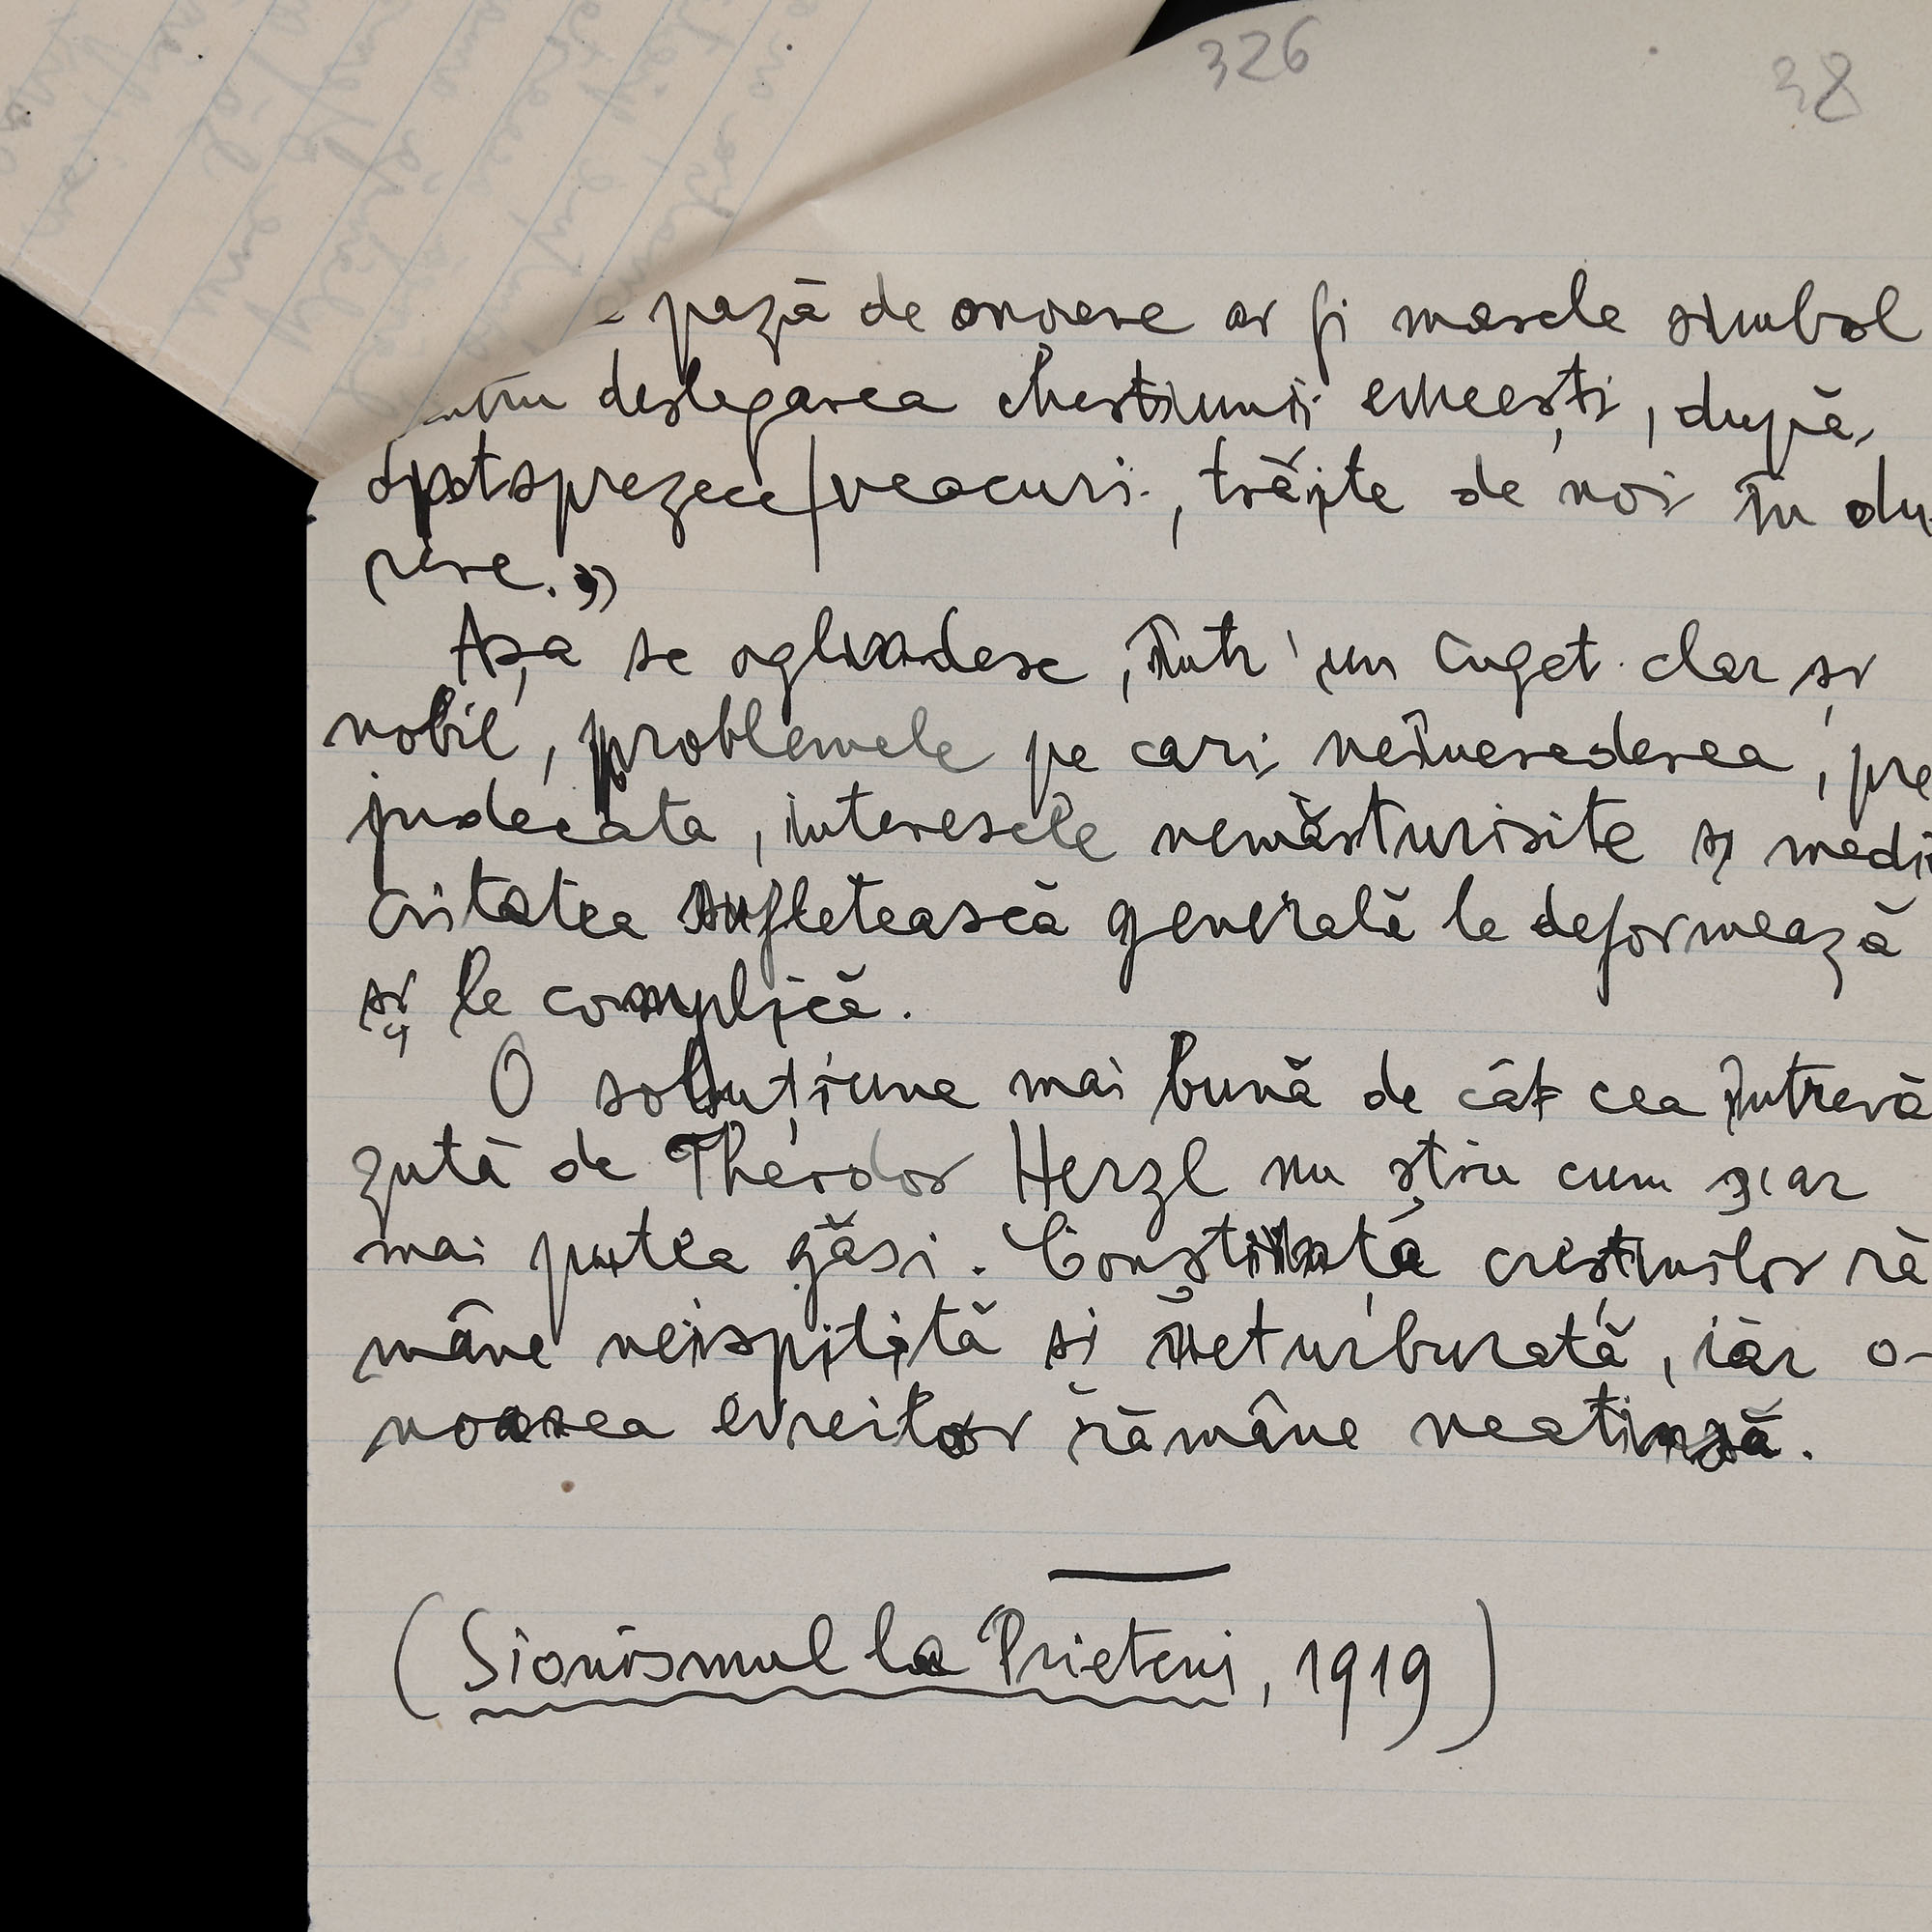 326 38
pază de onoare ar fi marele simbol
deslegarea chestiunii evreești, după
optsprezece veacuri, trăite de noi în du
rere.”
Așa se oglindesc, într'un cuget clar și
nobil, problemele pe cari neîncrederea, pre
judecata, interesele nemărturisite și medio
critatea sufletească generală le deformează
și le complică.
O soluțiune mai bună de cât cea întrevă
zută de Theodor Herzl nu știu cum s'ar
mai putea găsi. Conștiința creștinilor ră
mâne neispitită și neturburată, iar o-
noarea evreilor rămâne neatinsă.
(Sionismul la Prieteni, 1919)